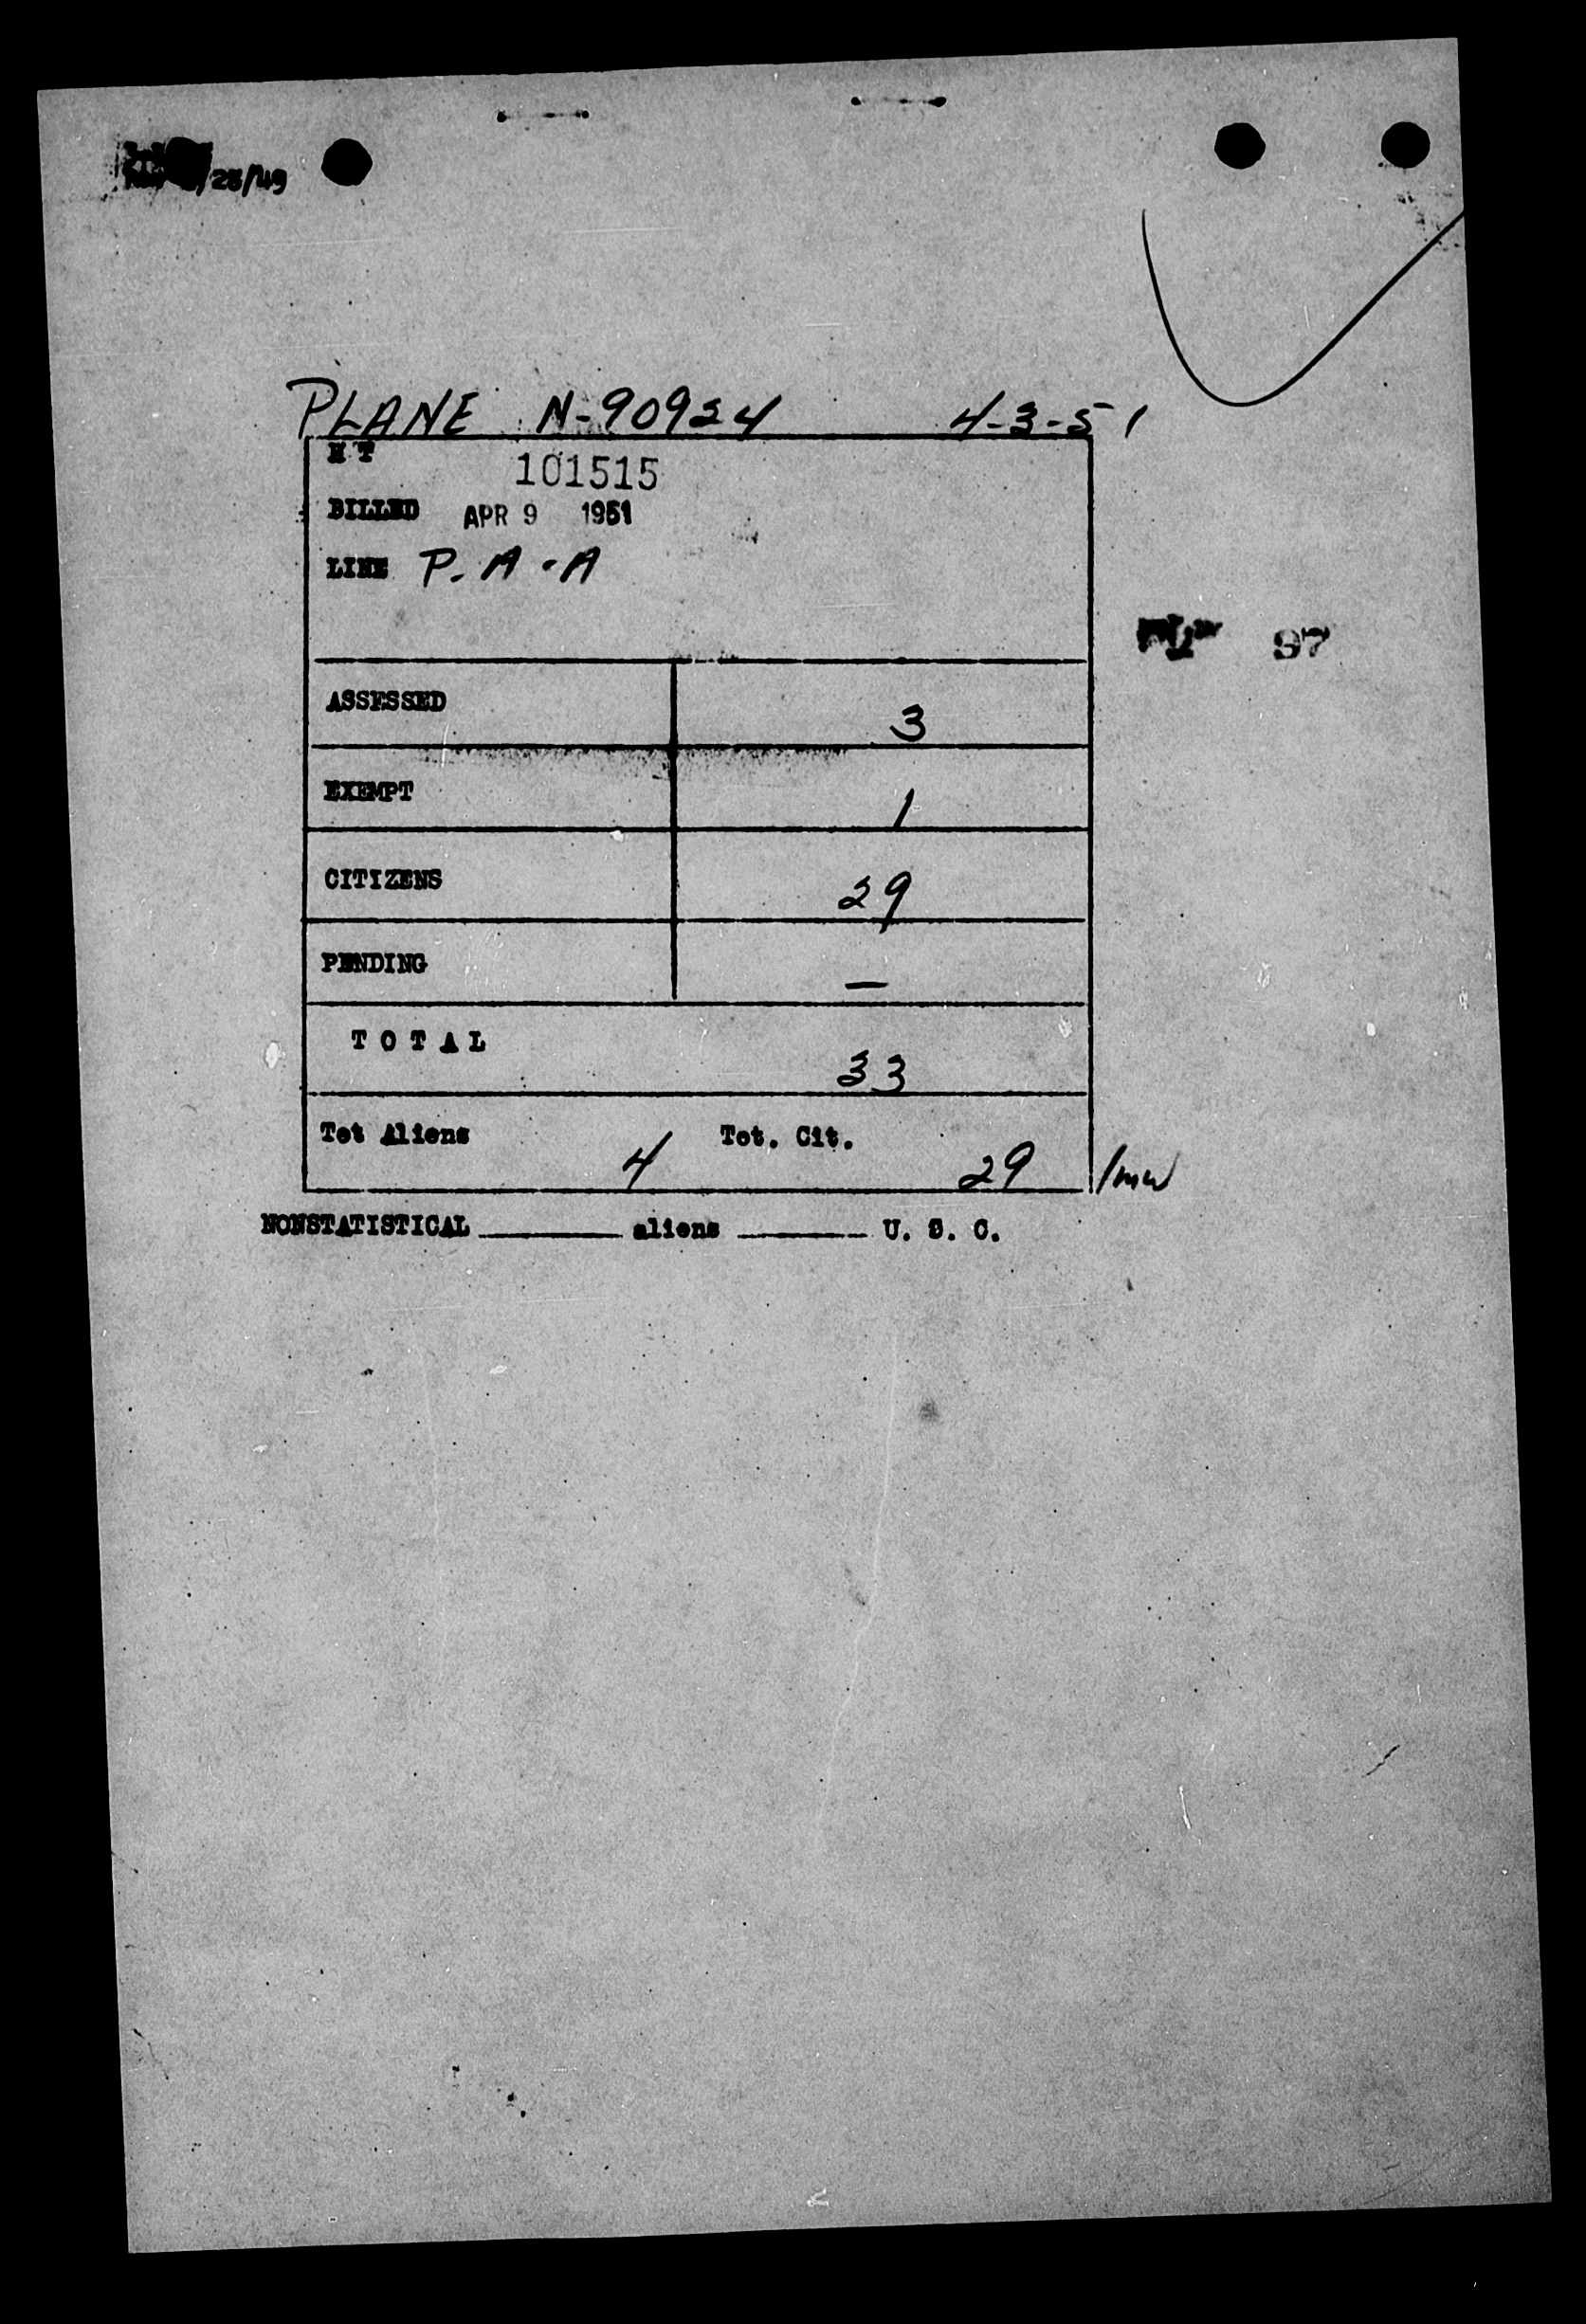 /25/49
PLANE N-90924 4-3-51
H T 101515
BILLED APR 9 1951
LINE P. A. A
97
ASSESSED 3
EXEMPT 1
CITIZENS 29
PENDING —
TOTAL 33
Tot Aliens 4 Tot. Cit. 29 /mw
NONSTATISTICAL ______ aliens ______ U. S. C.